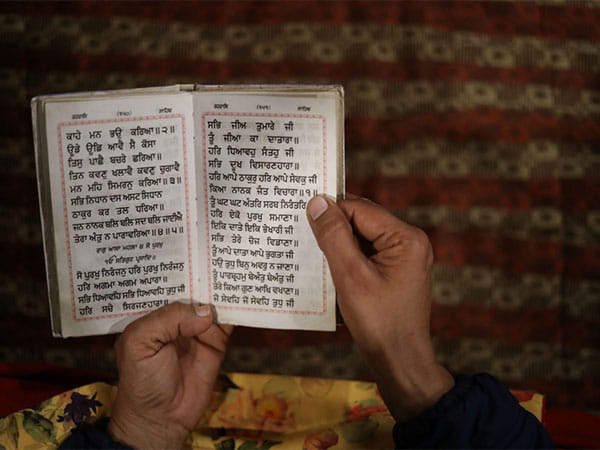 ਕਾਹੇ ਮਨ ਭਉ ਕਰਿਆ॥੨॥
ਊਡੇ ਊਡਿ ਆਵੈ ਸੈ ਕੋਸਾ
ਤਿਸੁ ਪਾਛੈ ਬਚਰੇ ਛਰਿਆ॥
ਤਿਨ ਕਵਣੁ ਖਲਾਵੈ ਕਵਣੁ ਚੁਗਾਵੈ
ਮਨ ਮਹਿ ਸਿਮਰਨੁ ਕਰਿਆ॥੩॥
ਸਭਿ ਨਿਧਾਨ ਦਸ ਅਸਟ ਸਿਧਾਨ
ਠਾਕੁਰ ਕਰ ਤਲ ਧਰਿਆ॥
ਜਨ ਨਾਨਕ ਬਲਿ ਬਲਿ ਸਦ ਬਲਿ ਜਾਈਐ
ਤੇਰਾ ਅੰਤੁ ਨ ਪਾਰਾਵਰਿਆ॥੪॥੫॥
ਰਾਗੁ ਆਸਾ ਮਹਲਾ ੪ ਸੋ ਪੁਰਖੁ
ੴ ਸਤਿਗੁਰ ਪ੍ਰਸਾਦਿ॥
ਸੋ ਪੁਰਖੁ ਨਿਰੰਜਨੁ ਹਰਿ ਪੁਰਖੁ ਨਿਰੰਜਨੁ
ਹਰਿ ਅਗਮਾ ਅਗਮ ਅਪਾਰਾ॥
ਸਭਿ ਧਿਆਵਹਿ ਸਭਿ ਧਿਆਵਹਿ ਤੁਧੁ ਜੀ
ਹਰਿ ਸਚੇ ਸਿਰਜਣਹਾਰਾ॥
ਸਭਿ ਜੀਅ ਤੁਮਾਰੇ ਜੀ
ਤੂੰ ਜੀਆ ਕਾ ਦਾਤਾਰਾ॥
ਹਰਿ ਧਿਆਵਹੁ ਸੰਤਹੁ ਜੀ
ਸਭਿ ਦੂਖ ਵਿਸਾਰਣਹਾਰਾ॥
ਹਰਿ ਆਪੇ ਠਾਕੁਰੁ ਹਰਿ ਆਪੇ ਸੇਵਕੁ ਜੀ
ਕਿਆ ਨਾਨਕ ਜੰਤ ਵਿਚਾਰਾ॥੧॥
ਤੂੰ ਘਟ ਘਟ ਅੰਤਰਿ ਸਰਬ ਨਿਰੰਤਰਿ
ਹਰਿ ਏਕੋ ਪੁਰਖੁ ਸਮਾਣਾ॥
ਇਕਿ ਦਾਤੇ ਇਕਿ ਭੇਖਾਰੀ ਜੀ
ਸਭਿ ਤੇਰੇ ਚੋਜ ਵਿਡਾਣਾ॥
ਤੂੰ ਆਪੇ ਦਾਤਾ ਆਪੇ ਭੁਗਤਾ ਜੀ
ਹਉ ਤੁਧੁ ਬਿਨੁ ਅਵਰੁ ਨ ਜਾਣਾ॥
ਤੂੰ ਪਾਰਬ੍ਰਹਮੁ ਬੇਅੰਤੁ ਬੇਅੰਤੁ ਜੀ
ਤੇਰੇ ਕਿਆ ਗੁਣ ਆਖਿ ਵਖਾਣਾ॥
ਜੋ ਸੇਵਹਿ ਜੋ ਸੇਵਹਿ ਤੁਧੁ ਜੀ